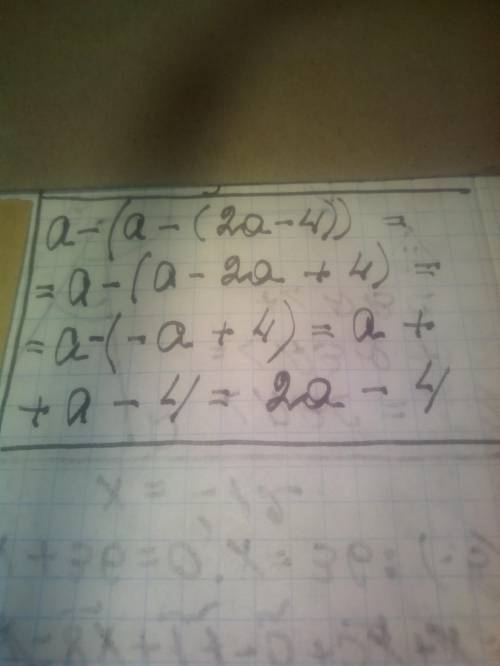 a-(a-(2a-4)) =
= a-(a-2a+4) =
= a-(-a+4) = a+
+a-4 = 2a-4